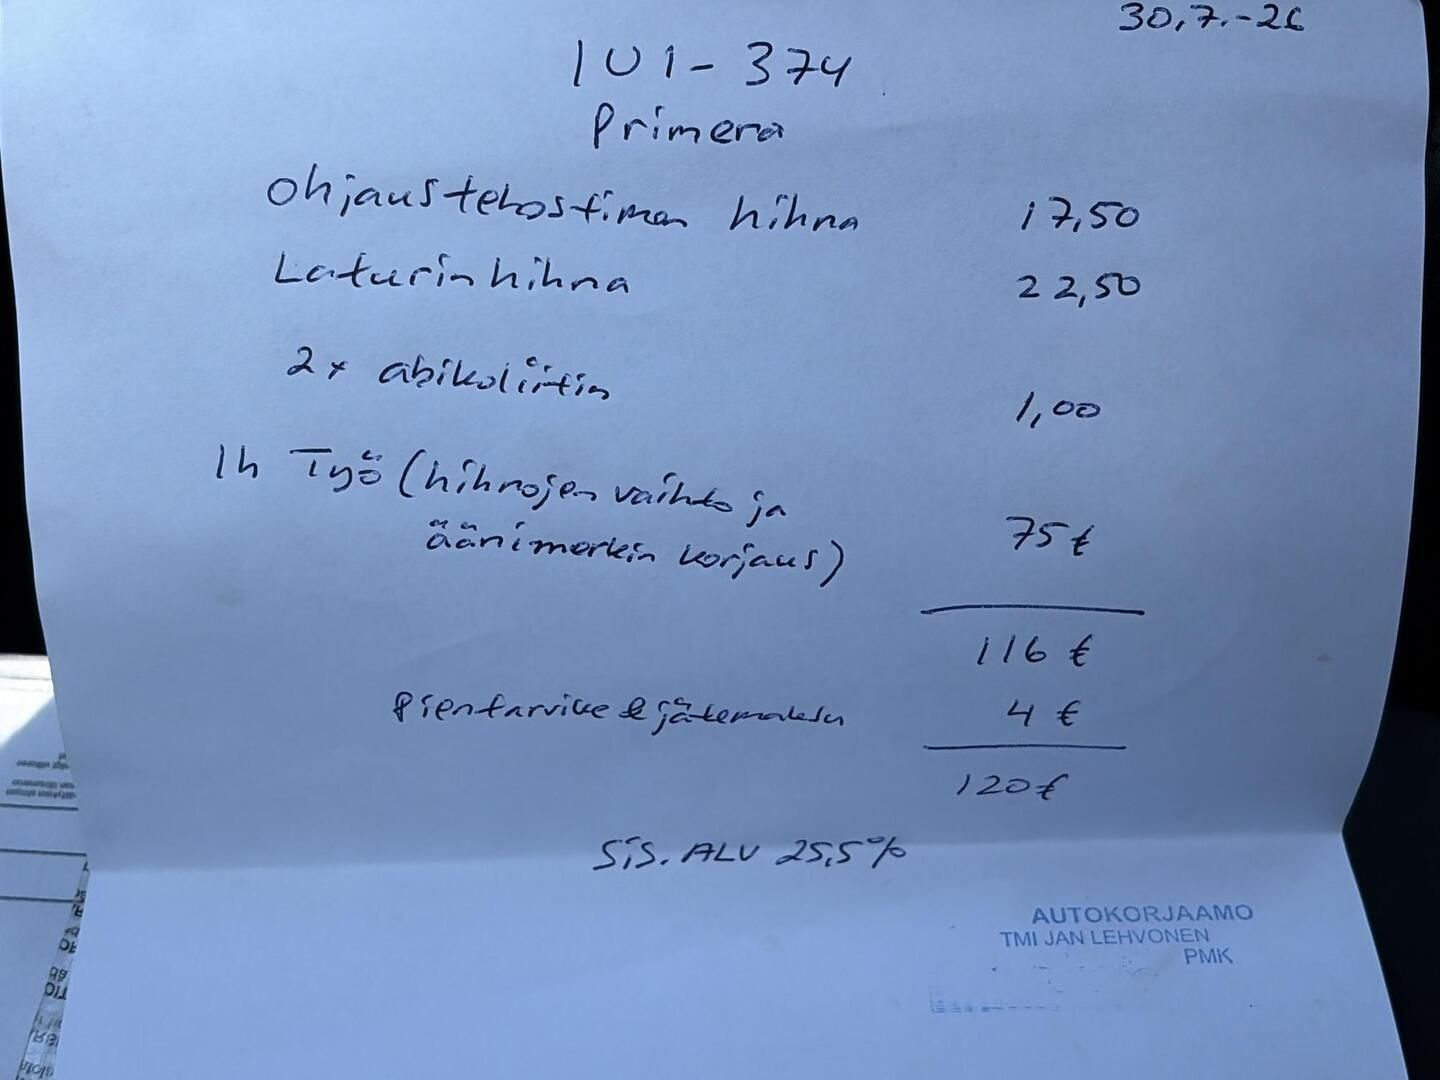 30.7.-26
IUI-374
Primera
Ohjaustehostimen hihna 17,50
Laturinhihna 22,50
2x abikoliitin 1,00
1h Työ (hihnojen vaihto ja
äänimerkin korjaus) 75€
116 €
Pientarvike & jätemaksu 4 €
120€
SiS. ALV 25,5%
AUTOKORJAAMO
TMI JAN LEHVONEN
PMK